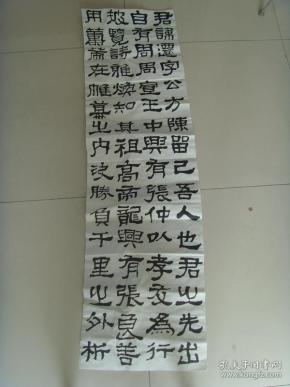 君諱遷字公方陳留己吾人也君之先出
自有周周宣王中興有張仲以孝友為行
披覽詩雅煥知其祖高帝龍興有張良善
用籌策在帷幕之內決勝負千里之外析
孔夫子旧书网